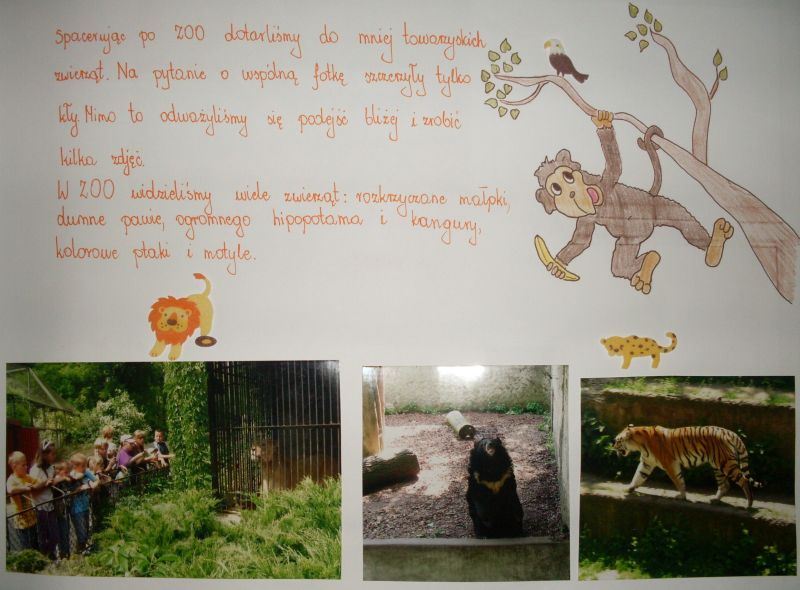 Spacerując po ZOO dotarliśmy do mniej towarzyskich
zwierząt. Na pytanie o wspólną fotkę szczerzyły tylko
kły. Mimo to odważyliśmy się podejść bliżej i zrobić
kilka zdjęć.
W ZOO widzieliśmy wiele zwierząt: rozkrzyczane małpki,
dumne pawie, ogromnego hipopotama i kangury,
kolorowe ptaki i motyle.